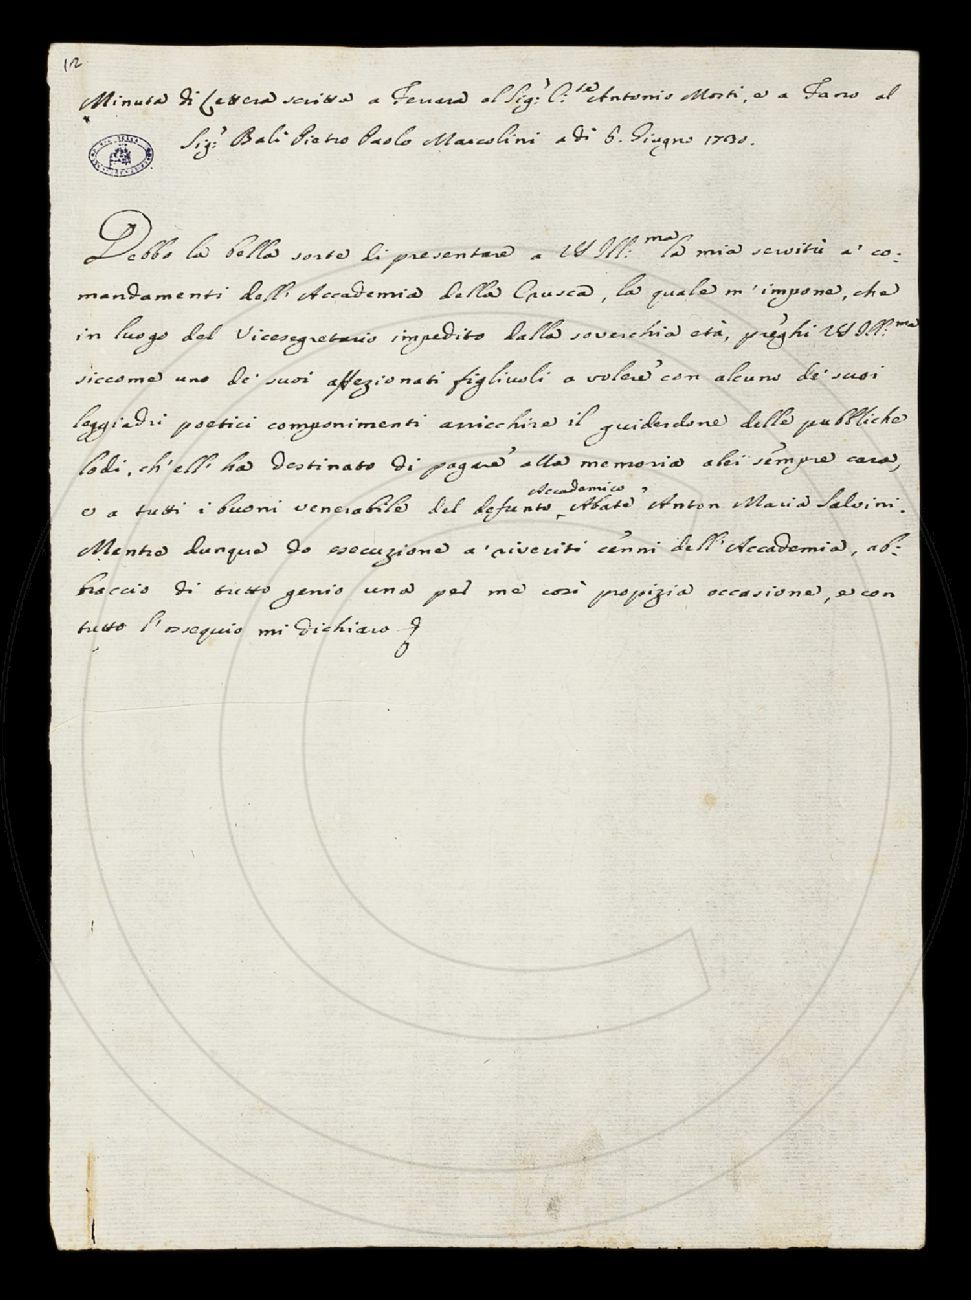 12
Minuta di Lettera scritta a Ferrara al Sig:r C:te Antonio Mosti, e a Fano al
Sig:r Balì Pietro Paolo Marcolini a dì 6. Giugno 1730.
Debbo la bella sorte di presentare a VS Ill:ma la mia servitù a' co:
mandamenti dell' Accademia della Crusca, la quale m'impone, che
in luogo del Vicesegretario impedito dalla soverchia età, preghi VS Ill:ma
siccome uno de' suoi affezionati figliuoli a volere con alcuno de' suoi
leggiadri poetici componimenti arricchire il guiderdone delle pubbliche
lodi, ch'ell' ha destinato di pagare alla memoria a lei sempre cara,
Accademico
e a tutti i buoni venerabile del defunto Abate Anton Maria Salvini.
Mentre dunque do esecuzione a' riveriti cenni dell'Accademia, ab:
braccio di tutto genio una per me così propizia occasione, e con
tutto l'ossequio mi dichiaro